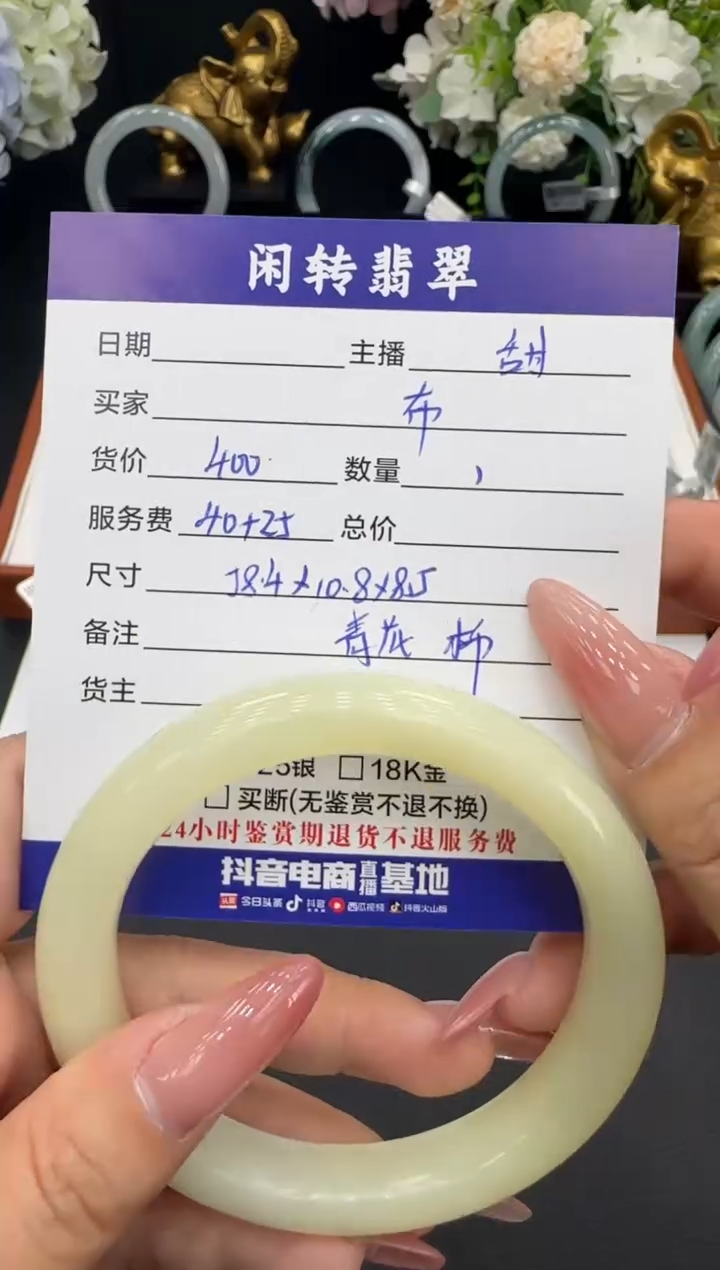 闲转翡翠
日期 主播 甜
买家 布
货价 400 数量 1
服务费 40+25 总价
尺寸 58.4×10.8×8.5
备注
货主
25银 □18K金
□ 买断(无鉴赏不退不换)
24小时鉴赏期退货不退服务费
抖音电商直播基地
头条 今日头条 抖音 西瓜视频 抖音火山版